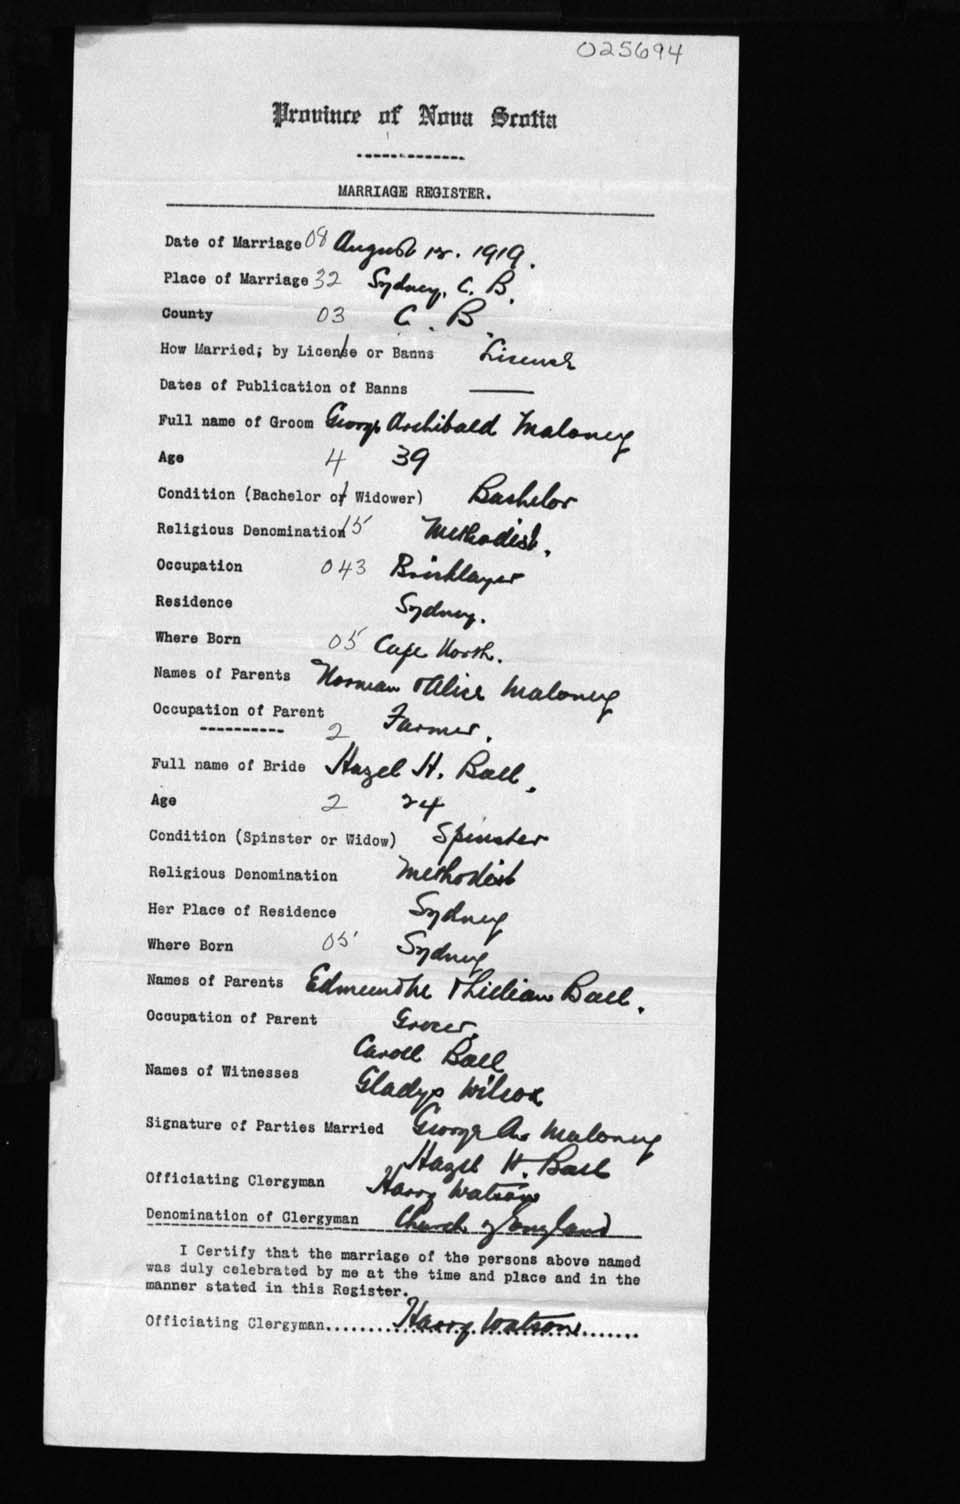 025694
Province of Nova Scotia
MARRIAGE REGISTER.
Date of Marriage 08 August 12. 1919.
Place of Marriage 32 Sydney, C. B.
County 03 C. B.
How Married; by License or Banns License
Dates of Publication of Banns ———
Full name of Groom George Archibald Maloney
Age 4 39
Condition (Bachelor or Widower) Bachelor
Religious Denomination 15 Methodist.
Occupation 043 Bricklayer
Residence Sydney.
Where Born 05 Cape North.
Names of Parents Norman & Alice Maloney
Occupation of Parent 2 Farmer.
----------
Full name of Bride Hazel H. Ball.
Age 2 24
Condition (Spinster or Widow) Spinster
Religious Denomination Methodist
Her Place of Residence Sydney
Where Born 05 Sydney
Names of Parents & Lillian Ball.
Occupation of Parent Grocer.
Caroll Ball
Names of Witnesses
Gladys Wilcox
Signature of Parties Married George A. Maloney
Hazel H. Ball
Officiating Clergyman Harry Watson
Denomination of Clergyman Church of England
I Certify that the marriage of the persons above named
was duly celebrated by me at the time and place and in the
manner stated in this Register.
Officiating Clergyman.....Harry Watson.....